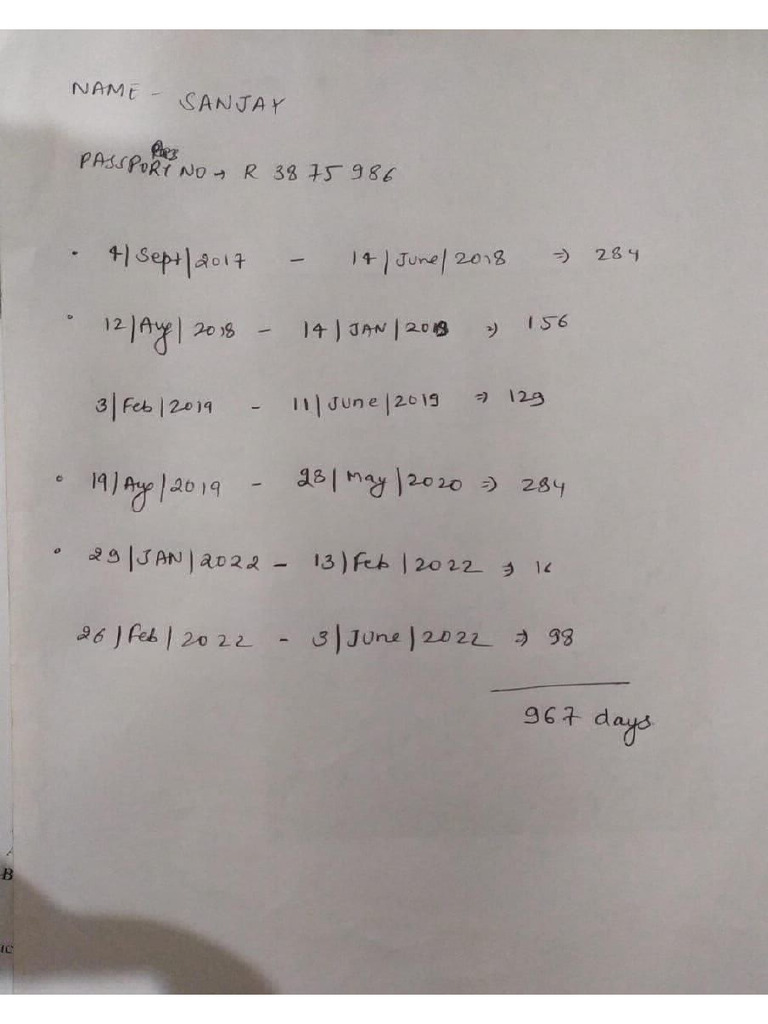 NAME - SANJAY
PASSPORT NO → R 3875986
• 4/Sept/2017 - 14/June/2018 ⇒ 284
• 12/Aug/2018 - 14/JAN/2019 ⇒ 156
3/Feb/2019 - 11/June/2019 ⇒ 129
• 19/Aug/2019 - 28/May/2020 ⇒ 284
• 29/JAN/2022 - 13/Feb/2022 ⇒ 16
26/Feb/2022 - 3/June/2022 ⇒ 98
967 days
B